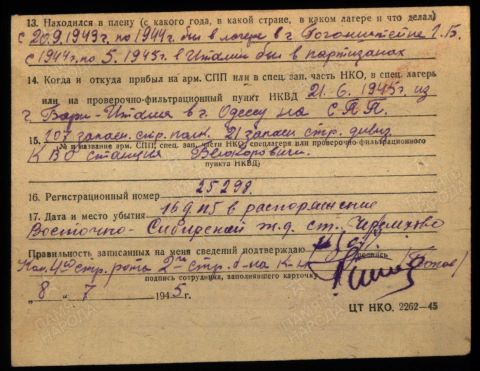 13. Находился в плену (с какого года, в какой стране, в каком лагере и что делал)
с 20.9.1943г. по 1944г. был в лагере в г. Гогоништейне Г.Б.
с 1944г. по 5.1945г. в Италии был в партизанах
14. Когда и откуда прибыл на арм. СПП или в спец. зап. часть НКО, в спец. лагерь
или на проверочно-фильтрационный пункт НКВД 21.6.1945г. из
г. Бари-Италия в г. Одессу на СПП.
15. 107 запасн. стр. полк. 21 запасн стр. дивиз.
(№ и название арм. СПП, спец. зап. части НКО, спецлагеря или проверочно-фильтрационного
КВО станция Белокоровичи.
пункта НКВД)
16. Регистрационный номер 25298.
17. Дата и место убытия в распоряжение
Восточно-Сибирской ж.д. ст. Черемхово
Правильность записанных на меня сведений подтверждаю
подпись
Ком. 4й стр. роты 2го стр. б-на к-н
подпись сотрудника, заполнявшего карточку
„8„ 7 1945г.
ЦТ НКО. 2262—45
ПАМЯТЬ НАРОДА